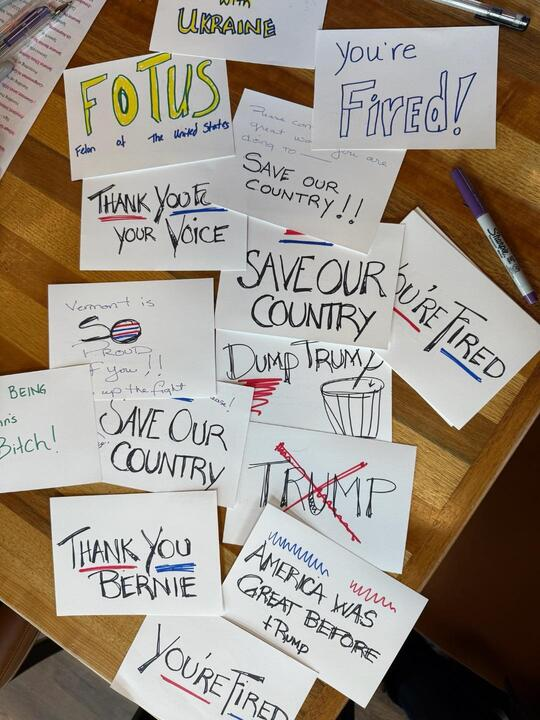 with
UKRAINE
You're
Fired!
FOTUS
Felon of The United States
great
you are
doing to
SAVE OUR
COUNTRY!!
THANK YOU
YOUR VOICE
SAVE OUR
COUNTRY
YOU'RE FIRED
Vermont is
SO
PROUD
of you!!
up the fight
DUMP TRUMP
BEING
Bitch!
SAVE OUR
COUNTRY
TRUMP
THANK YOU
BERNIE
AMERICA WAS
GREAT BEFORE
tRump
YOU'RE FIRED
Sharpie